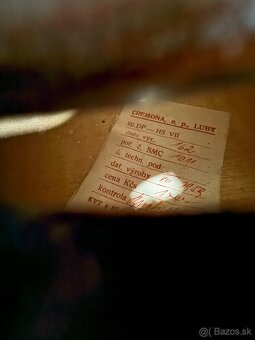 CREMONA, n. p., LUBY
MLDP — HS VII
číslo výr. 162
poř. č. SMC 1011
č. techn. pod.
dat. výroby VIII.
cena Kčs
kontrola
@ | Bazos.sk